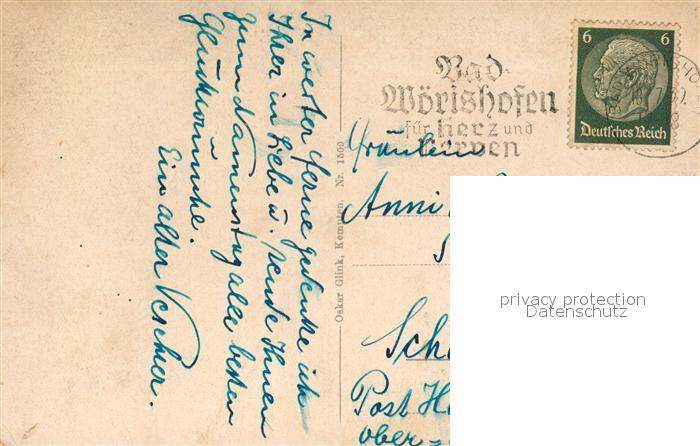 In weiter Ferne gedenke ich
Ihrer in Liebe u. sende Ihnen
zum Namenstag alle besten
Glückwünsche.
Ein alter Verehrer.
Oskar Glink, Kempten. Nr. 1500
Bad
Wörishofen
für Herz und
Nerven
6 6
Deutsches Reich
Fräulein
Anni
Sch
Post H
Ober-
privacy protection
Datenschutz